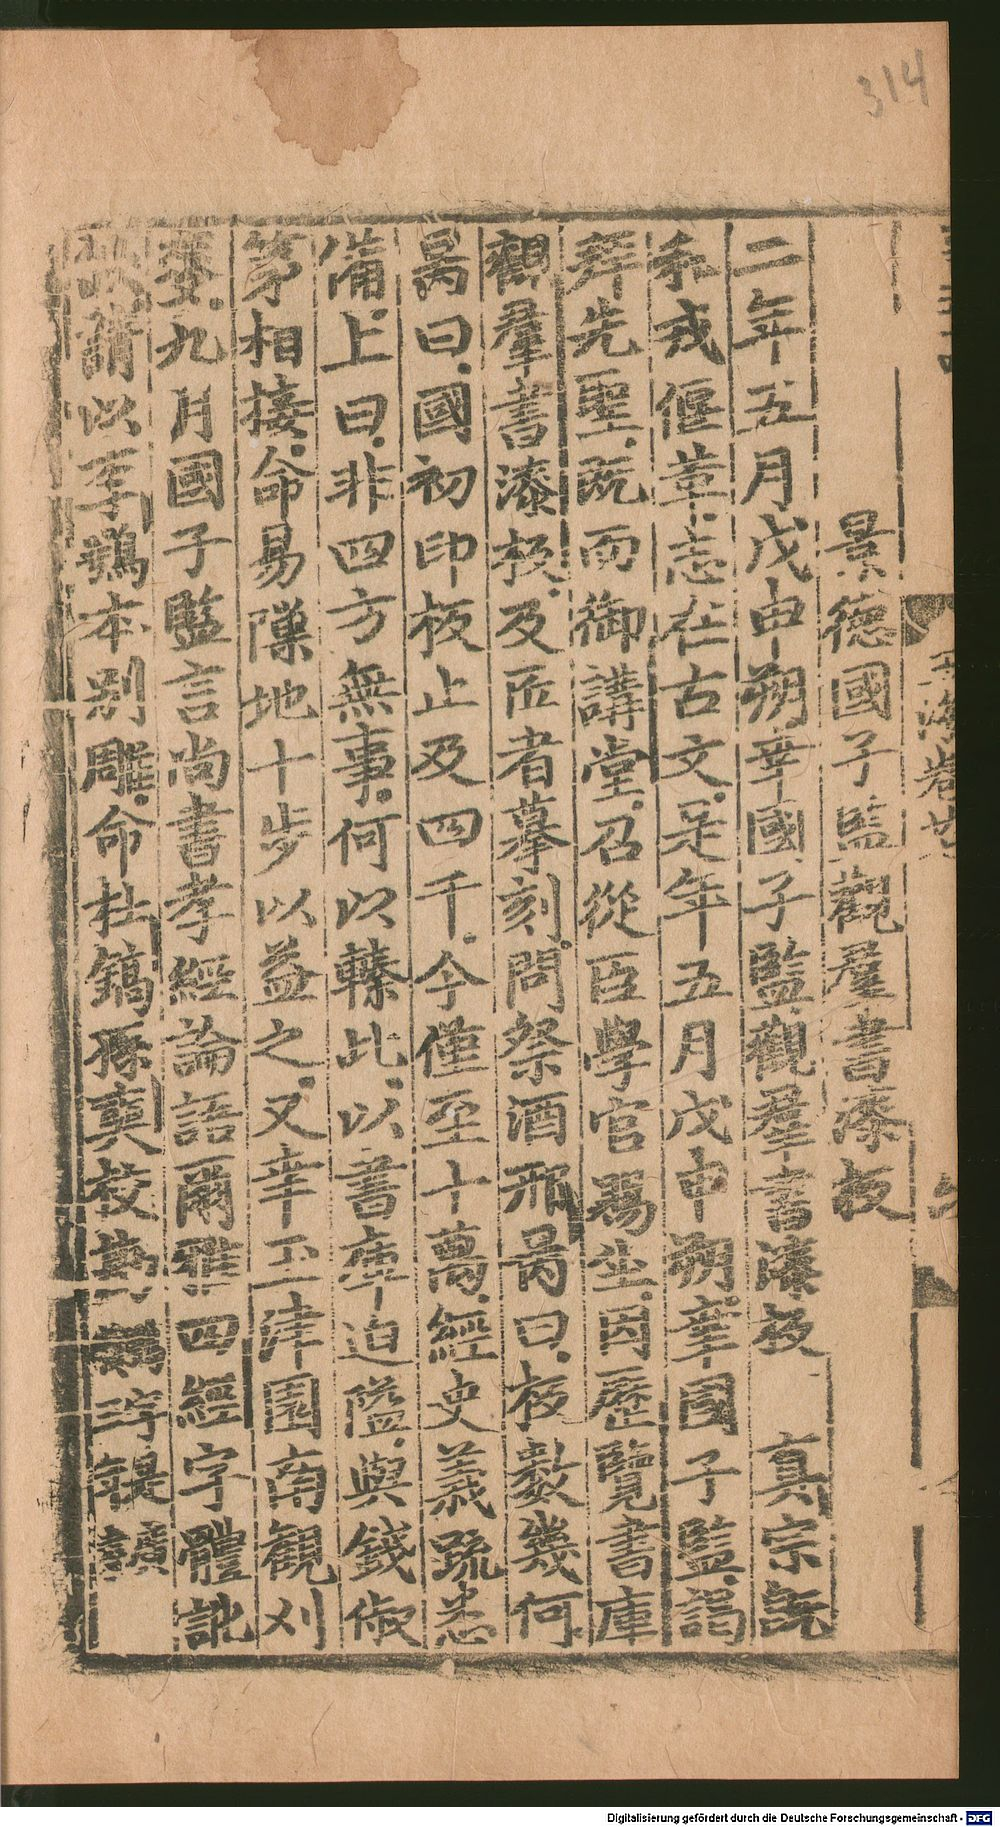 314
景德國子監觀羣書漆板
二年五月戊申朔幸國子監觀羣書漆板 真宗既
和戎偃革志在古文是年五月戊申朔幸國子監謁
拜先聖既而御講堂召從臣學官賜坐因歷覽書庫
觀羣書漆板及匠者摹刻問祭酒邢昺曰板數幾何
昺曰國初印板止及四千今僅至十萬經史義疏悉
備上曰非四方無事何以臻此以書庫迫隘與錢俶
第相接命易隙地十步以益之又幸玉津園南觀刈
麥九月國子監言尚書孝經論語爾雅四經字體訛
缺請以李鶚本別雕命杜鎬孫奭校
Digitalisierung gefördert durch die Deutsche Forschungsgemeinschaft - DFG